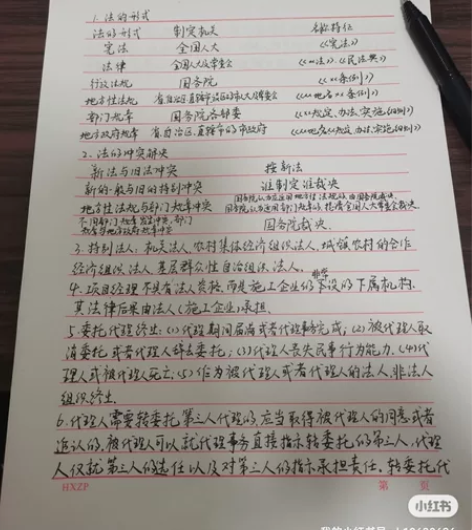 1. 法的形式
法的形式 制定机关 名称特征
宪法 全国人大 《宪法》
法律 全国人大及常委会 《××法》、《民法典》
行政法规 国务院 《××条例》
地方性法规 省.自治区.直辖市.设区的市人大及常委会 《××地名××条例》
部门规章 国务院各部委 《××规定、办法、实施细则》
地方政府规章 省.自治区.直辖市的市政府 《××地名××规定、办法、实施细则》
2. 法的冲突解决
新法与旧法冲突 按新法
新的一般与旧的特别冲突 谁制定谁裁决
地方性法规与部门规章冲突 国务院认为应适用地方性法规的.由国务院裁决.
国务院认为应适用部门规章的.提请全国人大常委会裁决
不同部门规章发生冲突.部门
规章与地方政府规章冲突 国务院裁决.
3. 特别法人: 机关法人.农村集体经济组织法人.城镇农村的合作
经济组织法人.基层群众性自治组织法人.
4. 项目经理不具有法人资格.而是施工企业的下设的下属机构.
其法律后果由法人(施工企业)承担.
5. 委托代理终止: (1)代理期间届满或者代理事务完成; (2)被代理人取
消委托或者代理人辞去委托; (3)代理人丧失民事行为能力. (4)代
理人或被代理人死亡. (5)作为被代理人或者代理人的法人.非法人
组织终止.
6. 代理人需要转委托第三人代理的.应当取得被代理人的同意或者
追认的.被代理人可以就代理事务直接指示转委托的第三人.代理
人仅就第三人的选任以及对第三人的指示承担责任. 转委托代
HXZP 第 页
小红书